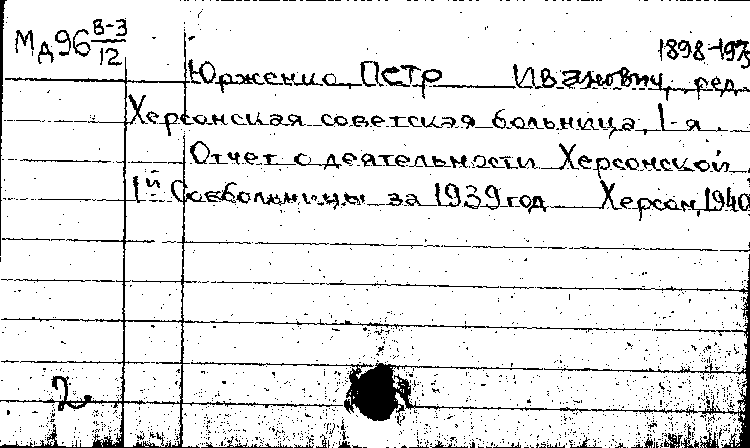 Мд96 В-3/12
1898-1975
Юрженко, Петр Иванович, ред.
Херсонская советская больница, 1-я.
Отчет о деятельности Херсонской
1й Совбольницы за 1939 год Херсон, 1940
2